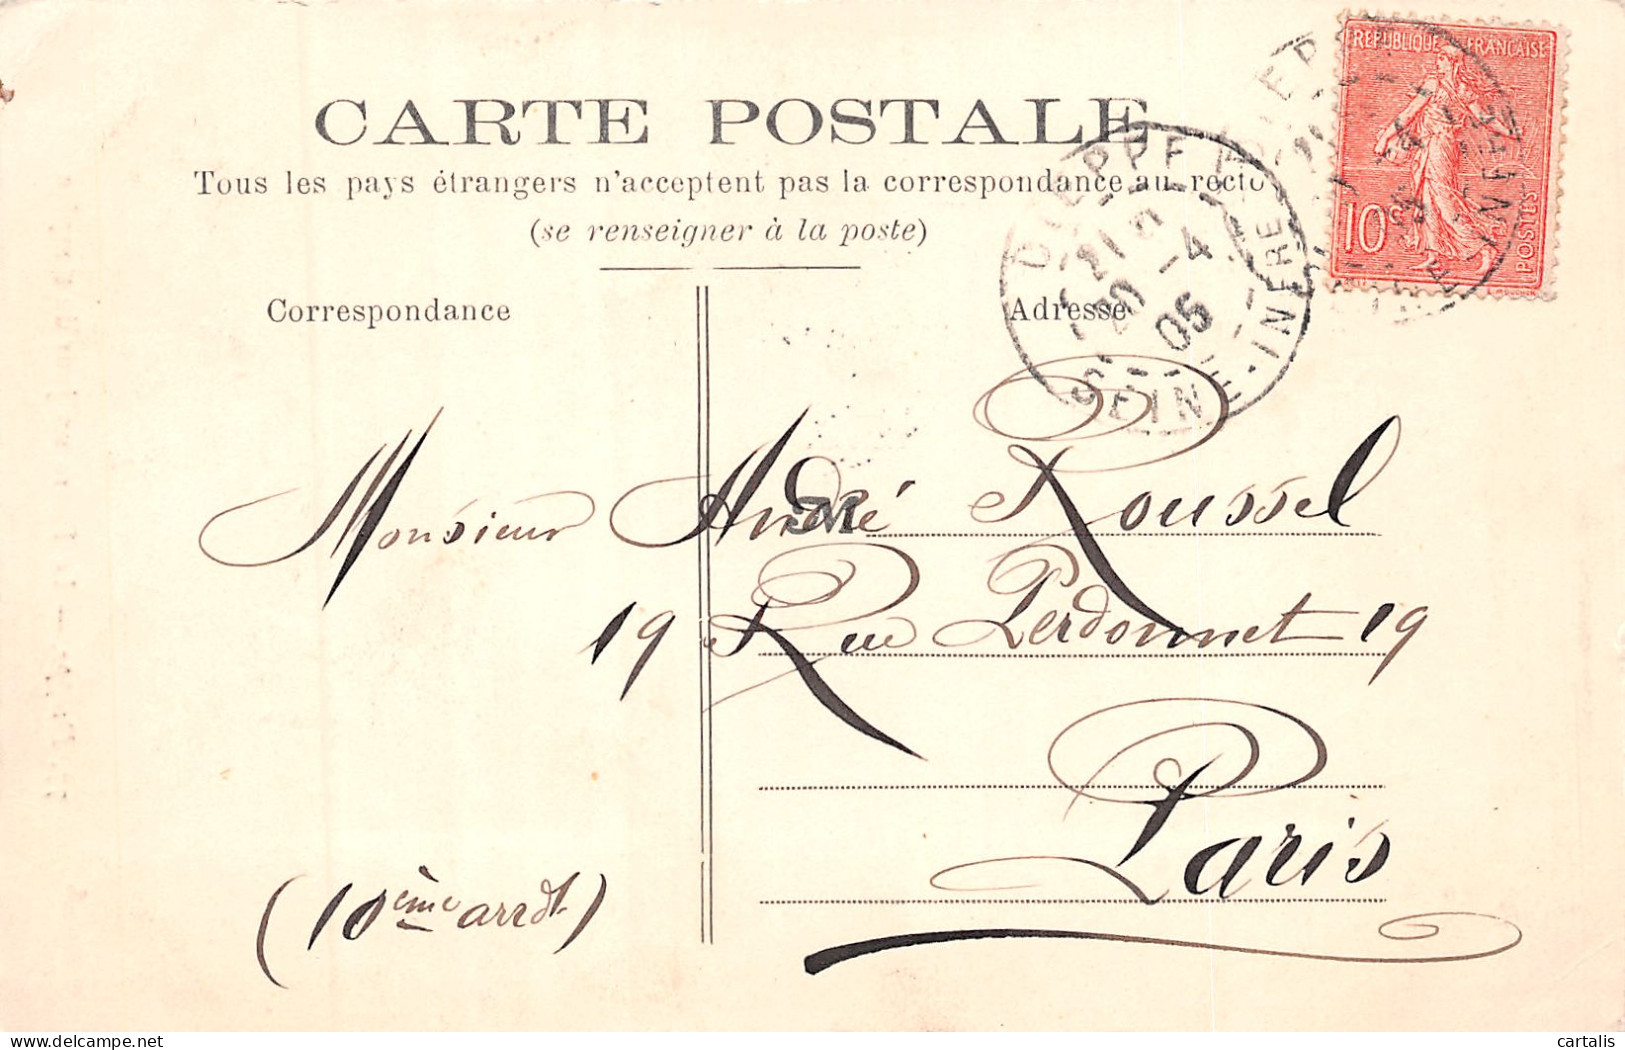 CARTE POSTALE
Tous les pays étrangers n'acceptent pas la correspondance au recto
(se renseigner à la poste)
Correspondance
Adresse
RÉPUBLIQUE FRANÇAISE
10c
POSTES
DIEPPE
21
20 -4
05
SEINE-INFRE
M
Monsieur André Roussel
19 Rue Perdonnet 19
Paris
(10ème arrdt)
delcampe.net
cartalis